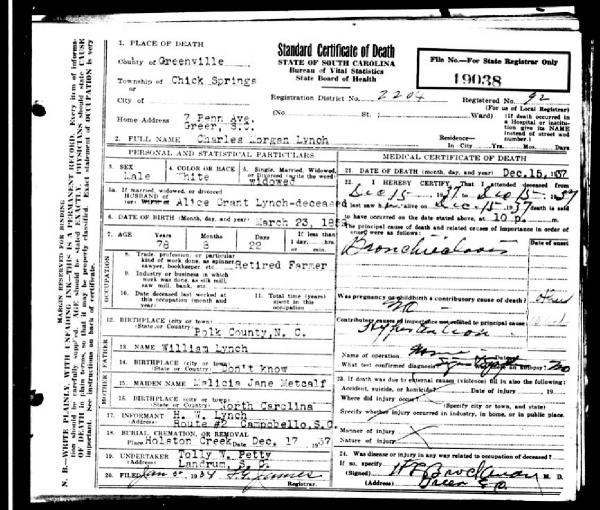 MARGIN RESERVED FOR BINDING
N. B.—WRITE PLAINLY, WITH UNFADING INK—THIS IS A PERMANENT RECORD. Every item of information should be carefully supplied. AGE should be stated EXACTLY. PHYSICIANS should state CAUSE OF DEATH in plain terms, so that it may be properly classified. Exact statement of OCCUPATION is very important. See instructions on back of certificate.
1. PLACE OF DEATH
County of Greenville
Township of Chick Springs
or
City of
Home Address 7 Penn Ave.
Greer, S.C.
Standard Certificate of Death
STATE OF SOUTH CAROLINA
Bureau of Vital Statistics
State Board of Health
File No.—For State Registrar Only
19038
Registration District No. 2204
Registered No. 92
(For use of Local Registrar)
(No. St.; Ward)
(If death occurred in a Hospital or institution give its NAME instead of street and number.)
2. FULL NAME Charles Morgan Lynch
Residence—
In City Yrs. Mos. Days
PERSONAL AND STATISTICAL PARTICULARS
3. SEX
Male
4. COLOR OR RACE
White
5. Single, Married, Widowed, or Divorced (write the word)
widowed
5a. If married, widowed, or divorced
HUSBAND of
Alice Grant Lynch-deceased
6. DATE OF BIRTH (month, day, and year) March 23,
7. AGE Years Months Days
78 8 22
If less than
1 day,
hrs.
or min.
OCCUPATION
8. Trade, profession, or particular kind of work done, as spinner, sawyer, bookkeeper, etc
Retired Farmer
9. Industry or business in which work was done, as silk mill, saw mill, bank, etc.
10. Date deceased last worked at this occupation (month and year)
11. Total time (years) spent in this occupation
12. BIRTHPLACE (city or town)
(State or Country)
Polk County, N. C.
FATHER
13. NAME William Lynch
14. BIRTHPLACE (city or town)
(State or Country) Don't know
MOTHER
15. MAIDEN NAME Malicia Jane Metcalf
16. BIRTHPLACE (city or town)
(State or Country) North Carolina
17. INFORMANT H. W. Lynch
(Address) Route #2 Campobello, S.C.
18. BURIAL, CREMATION, OR REMOVAL
Place Holston Creek Date Dec. 17 1937
19. UNDERTAKER Tolly W. Petty
(Address) Landrum, S. C.
20. FILED Jan
Registrar.
MEDICAL CERTIFICATE OF DEATH
21. DATE OF DEATH (month, day, and year) Dec.15, 1937
22. I HEREBY CERTIFY, That I attended deceased from
Dec 15 1937 to Dec 15 1937
I last saw h alive on Dec. 15 1937 death is said
to have occurred on the date stated above, at 10 p. m.
The principal cause of death and related causes of importance in order of onset were as follows:
Date of onset
Bronchiectasis
Was pregnancy or childbirth a contributory cause of death?
no
Contributory causes of importance not related to principal cause:
Hypertension
Name of operation none Date of
What test confirmed diagnosis? Was there an autopsy? No
23. If death was due to external causes (violence) fill in also the following:
Accident, suicide, or homicide? Date of injury 19
Where did injury occur?
(Specify city or town, and state)
Specify whether injury occurred in industry, in home, or in public place.
Manner of injury
Nature of injury
24. Was disease or injury in any way related to occupation of deceased?
If so, specify
(Signed) M. D.
(Address) Greer S.C.